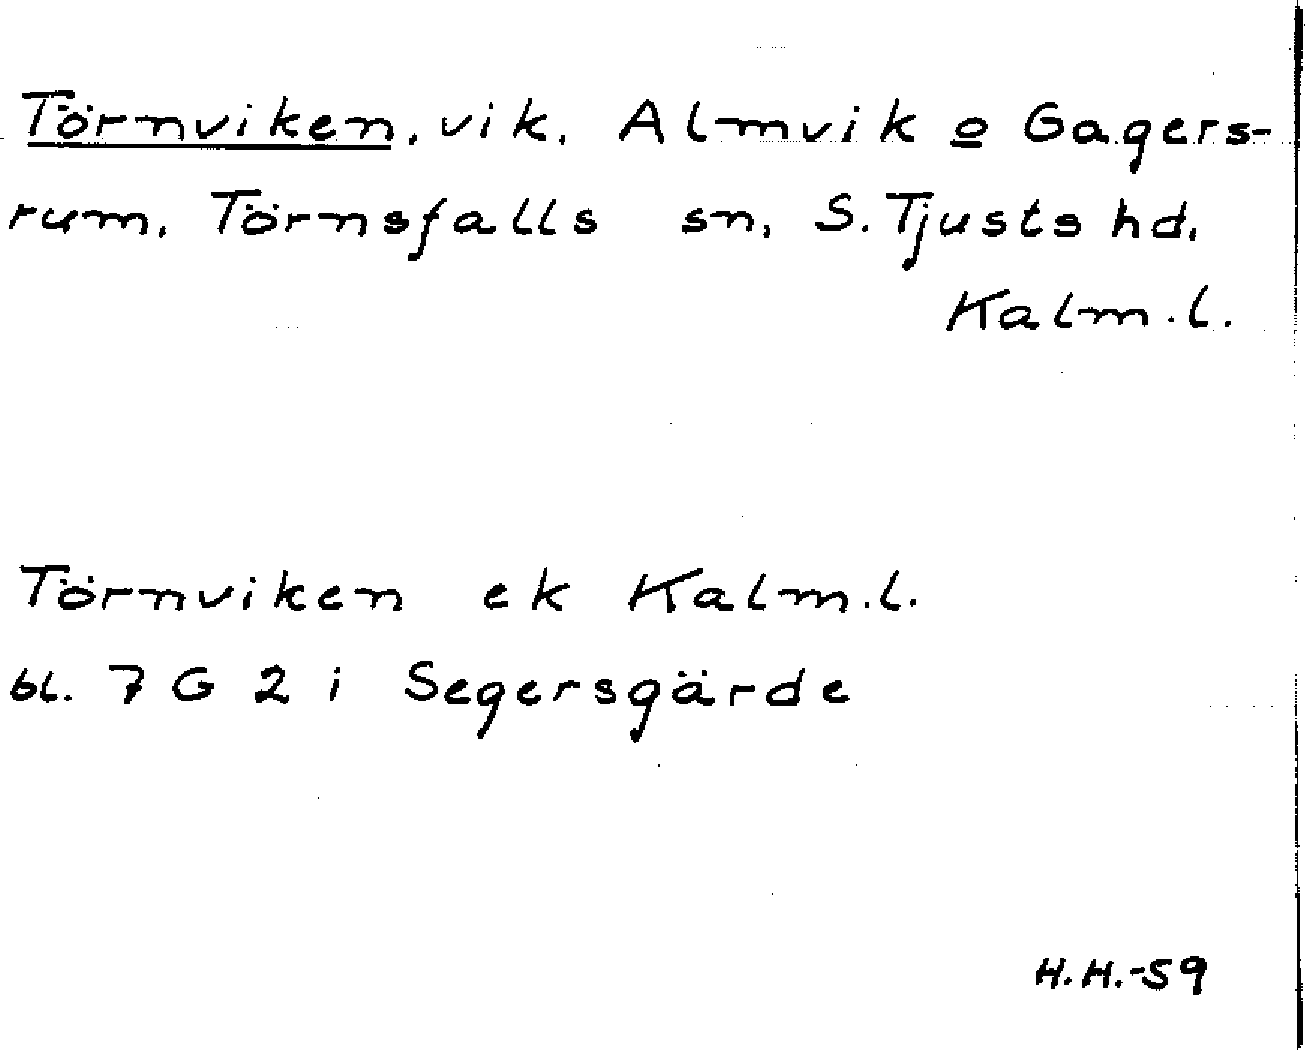 Törnviken, vik, Almvik o Gagers-
rum, Törnsfalls sn, S. Tjusts hd,
Kalm.l.
Törnviken ek Kalm.l.
bl. 7 G 2 i Segersgärde
H.H.-59